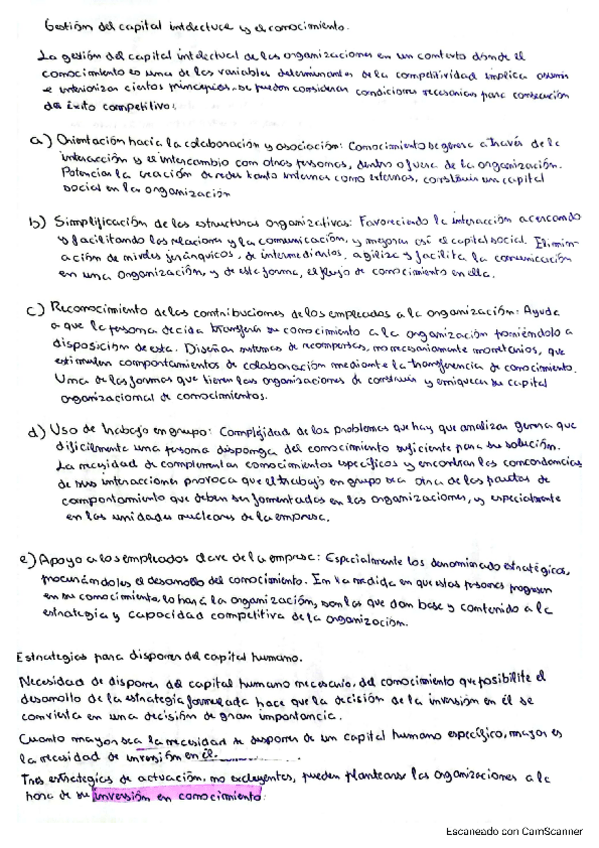 Gestión del capital intelectual y el conocimiento.
La gestión del capital intelectual de las organizaciones en un contexto donde el
conocimiento es una de las variables determinantes de la competitividad implica asumir
e interiorizar ciertos principios, se pueden considerar condiciones necesarias para consecución
de éxito competitivo:
a) Orientación hacia la colaboración y asociación: Conocimiento se genera a través de la
interacción y el intercambio con otras personas, dentro o fuera de la organización.
Potenciar la creación de redes tanto internas como externas, constituir un capital
social en la organización
b) Simplificación de las estructuras organizativas: Favoreciendo la interacción acercando
y facilitando las relaciones y la comunicación, y mejorar así el capital social. Elimin-
ación de niveles jerárquicos, de intermediarios, agiliza y facilita la comunicación
en una organización, y de esta forma, el flujo de conocimiento en ella.
c) Reconocimiento de las contribuciones de los empleados a la organización: Ayuda
a que la persona decida transferir su conocimiento a la organización poniéndolo a
disposición de esta. Diseñar sistemas de recompensas, no necesariamente monetarios, que
estimulen comportamientos de colaboración mediante la transferencia de conocimiento.
Una de las formas que tienen las organizaciones de construir y enriquecer su capital
organizacional de conocimientos.
d) Uso de trabajo en grupo: Complejidad de los problemas que hay que analizar genera que
dificilmente una persona disponga del conocimiento suficiente para su solución.
La necesidad de complementar conocimientos específicos y encontrar las concordancias
de sus interacciones provoca que el trabajo en grupo sea otra de las pautas de
comportamiento que deben ser fomentadas en las organizaciones, y especialmente
en las unidades nucleares de la empresa.
e) Apoyo a los empleados clave de la empresa: Especialmente los denominado estratégicos,
procurándoles el desarrollo del conocimiento. En la medida en que estas personas progresen
en su conocimiento, lo hará la organización, son las que dan base y contenido a la
estrategia y capacidad competitiva de la organización.
Estrategias para disponer del capital humano.
Necesidad de disponer del capital humano necesario, del conocimiento que posibilite el
desarrollo de la estrategia formulada hace que la decisión de la inversión en él se
convierta en una decisión de gran importancia.
Cuanto mayor sea la necesidad de disponer de un capital humano específico, mayor es
la necesidad de inversión en él.
Tres estrategias de actuación, no excluyentes, pueden plantearse las organizaciones a la
hora de su inversión en conocimiento:
Escaneado con CamScanner